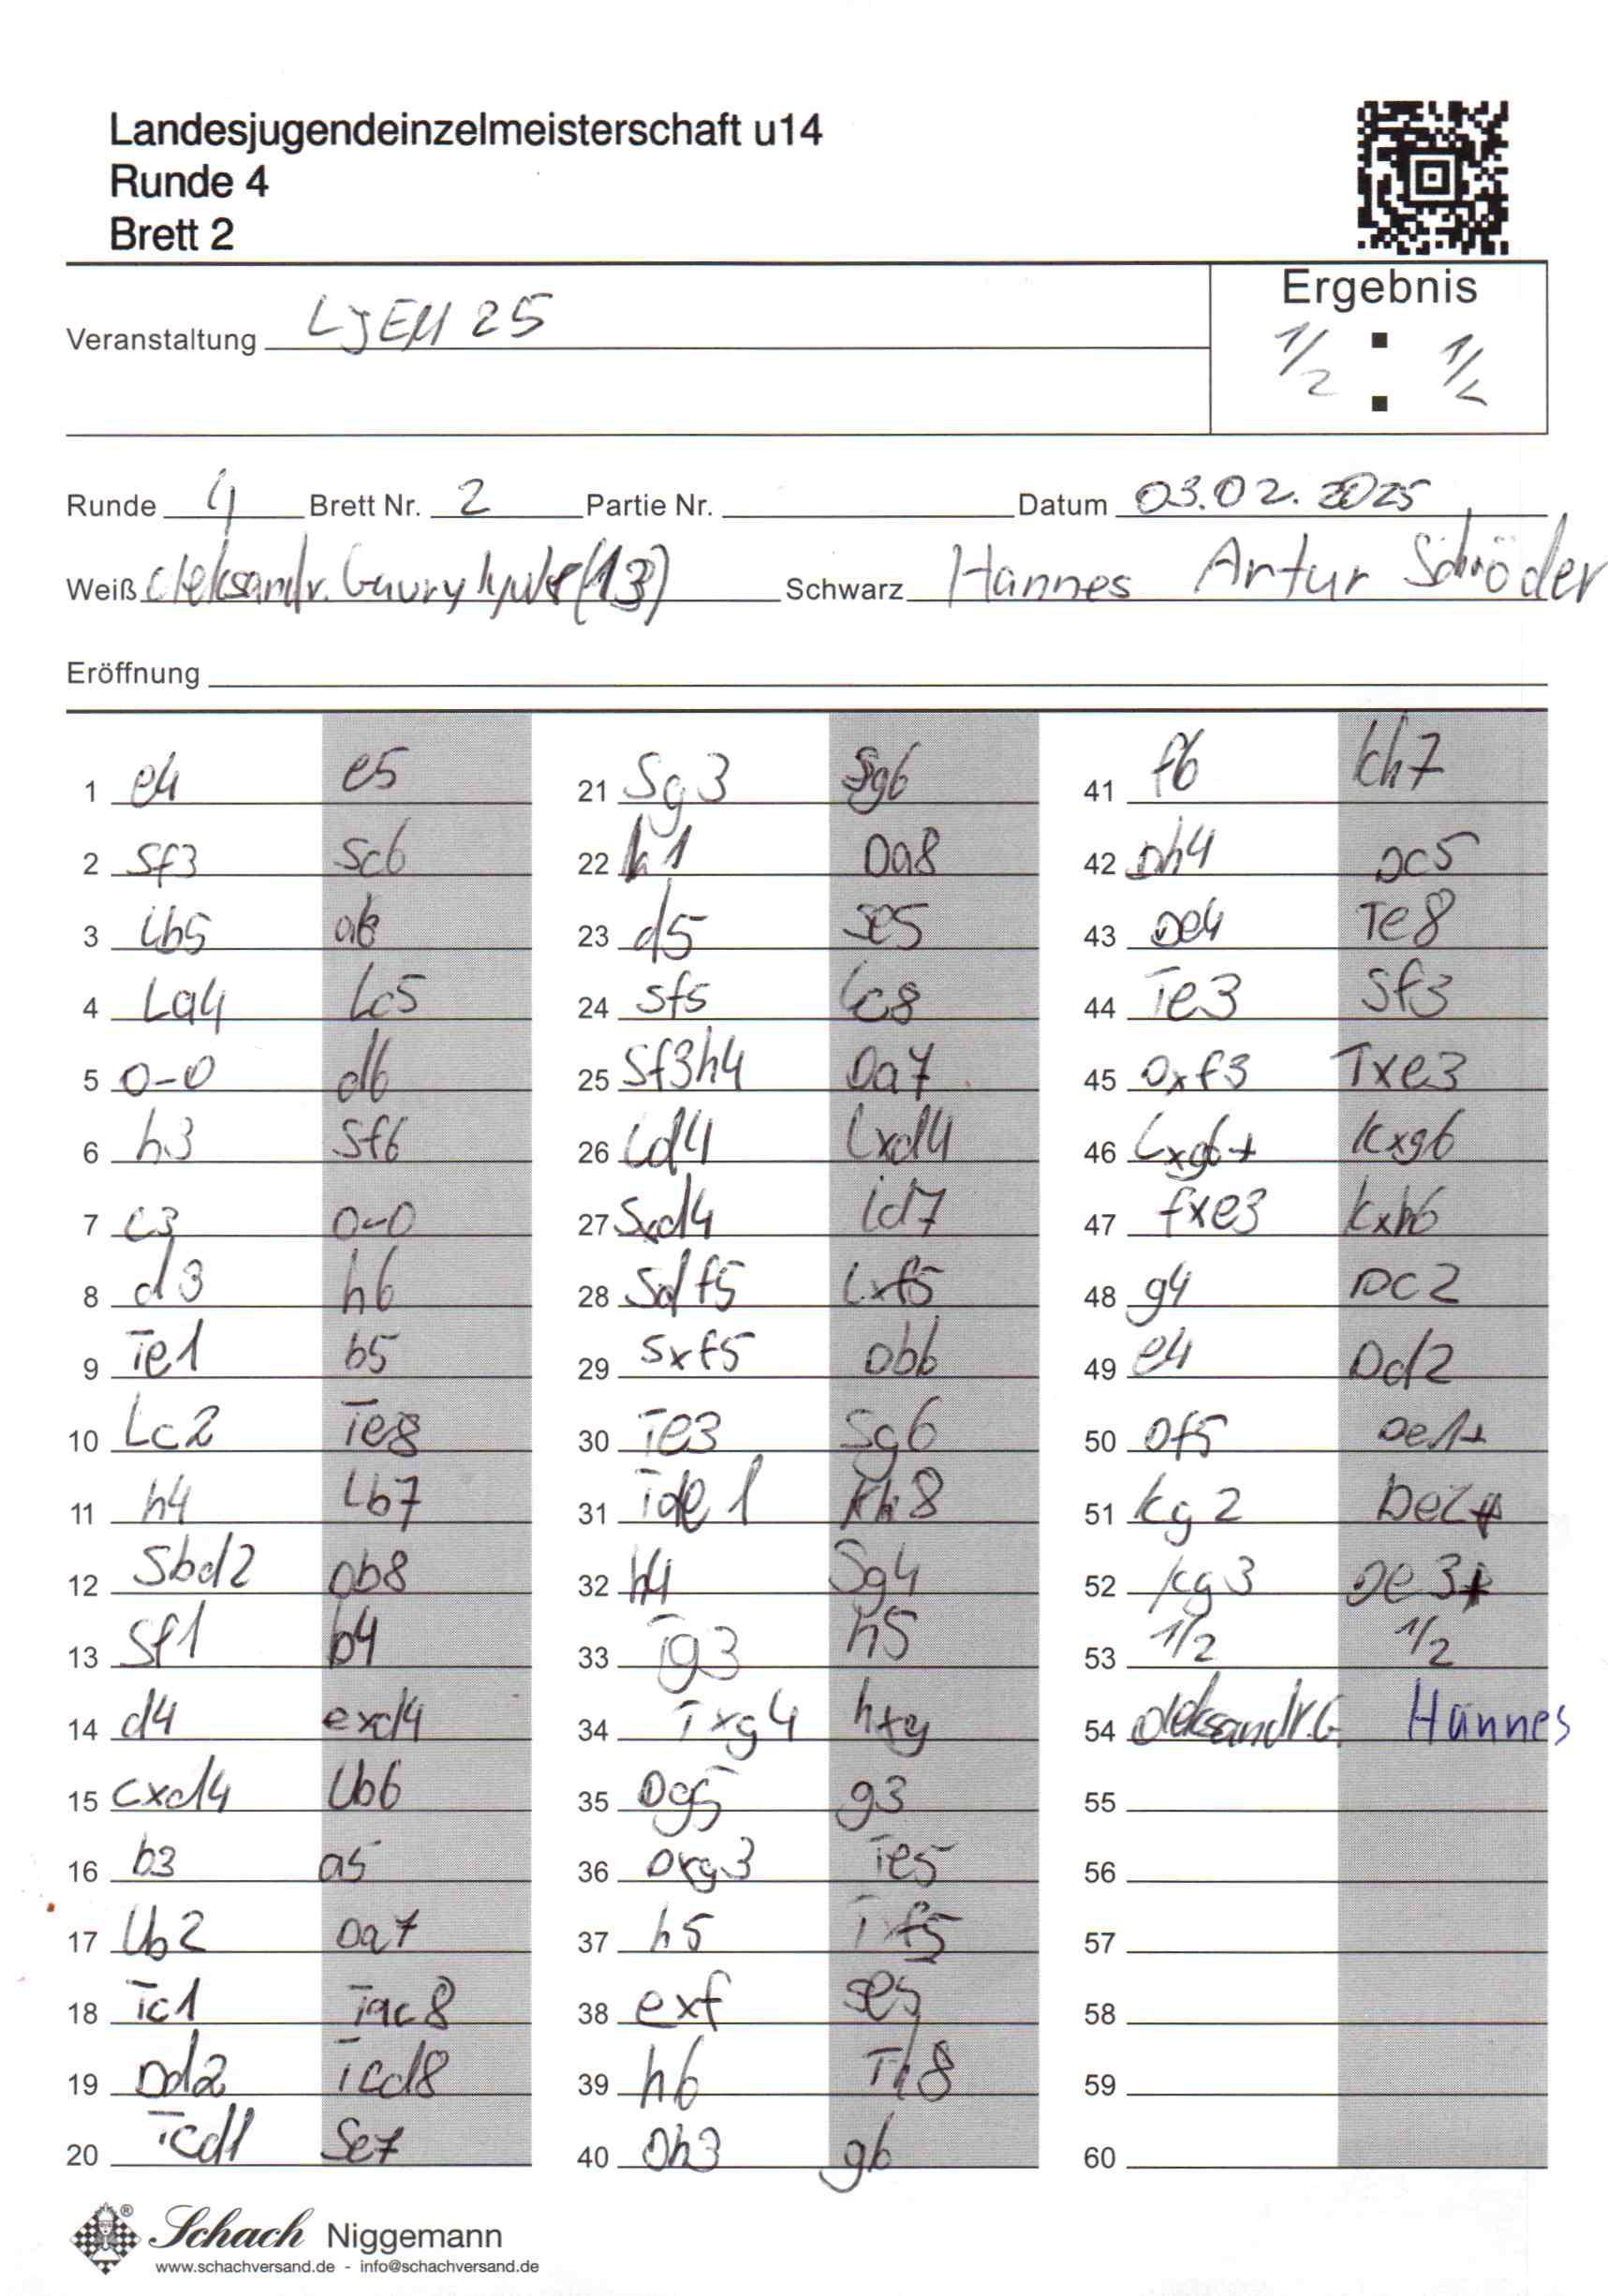 Landesjugendeinzelmeisterschaft u14
Runde 4
Brett 2
Ergebnis
Veranstaltung LJEM 25
1/2 : 1/2
Runde 4 Brett Nr. 2 Partie Nr. Datum 03.02.2025
Weiß Oleksandr. (13) Schwarz Hannes Artur Schröder
Eröffnung
1 e4 e5
2 Sf3 Sc6
3 Lb5 a6
4 La4 Lc5
5 0-0 d6
6 h3 Sf6
7 c3 0-0
8 d3 h6
9 Te1 b5
10 Lc2 Te8
11 h4 Lb7
12 Sbd2 Db8
13 Sf1 b4
14 d4 exd4
15 cxd4 Lb6
16 b3 a5
17 Lb2 Da7
18 Tc1 Tac8
19 Dd2 Tcd8
20 Tcd1 Se7
21 Sg3 Sg6
22 h1 Da8
23 d5 Se5
24 Sf5 Lc8
25 Sf3h4 Da7
26 Ld4 Lxd4
27 Sxd4 Ld7
28 Sdf5 Lxf5
29 Sxf5 Db6
30 Te3 Sg6
31 Tde1 Kh8
32 h4 Sg4
33 Tg3 h5
34 Txg4 hxg
35 Dg5 g3
36 Dxg3 Te5
37 h5 Txf5
38 exf Se5
39 h6 Th8
40 Dh3 g6
41 f6 Kh7
42 Dh4 Dc5
43 De4 Te8
44 Te3 Sf3
45 Dxf3 Txe3
46 Lxg6+ Kxg6
47 fxe3 Kxh6
48 g4 Dc2
49 e4 Dd2
50 Df5 De1+
51 Kg2 De2+
52 Kg3 De3+
53 1/2 1/2
54 Oleksandr.G. Hannes
55
56
57
58
59
60
Schach Niggemann
www.schachversand.de - info@schachversand.de